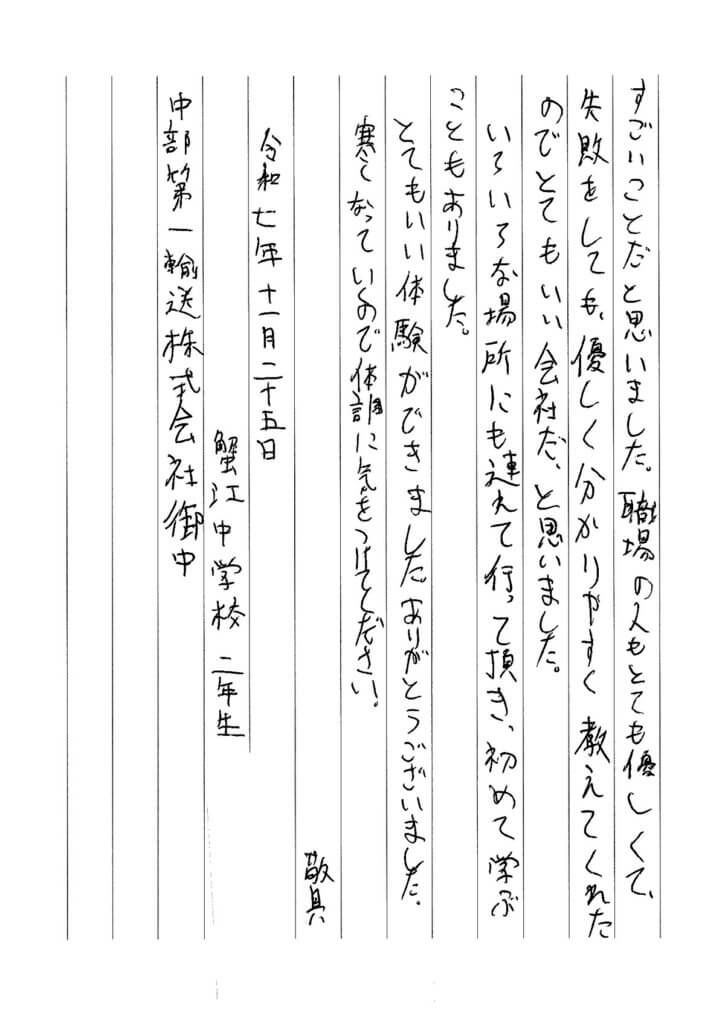 すごいことだと思いました。職場の人もとても優しくて、
失敗をしても、優しく分かりやすく教えてくれた
のでとてもいい会社だ、と思いました。
いろいろな場所にも連れて行って頂き、初めて学ぶ
こともありました。
とてもいい体験ができました。ありがとうございました。
寒くなっていくので体調に気をつけてください。
敬具
令和七年十一月二十五日
蟹江中学校 二年生
中部第一輸送株式会社御中